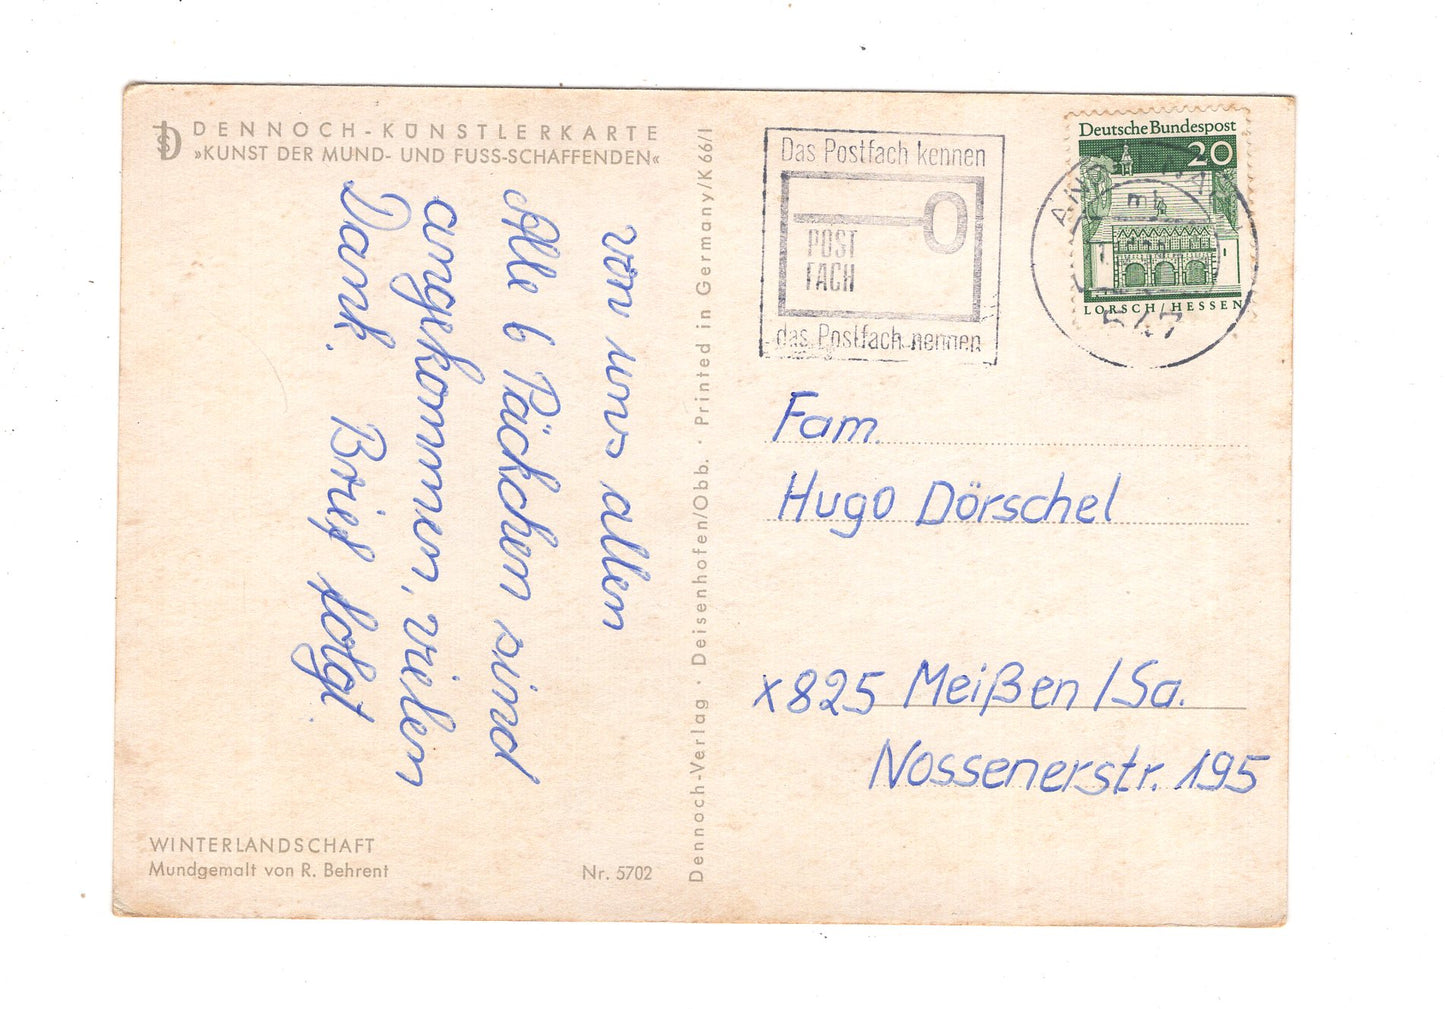 DENNOCH-KÜNSTLERKARTE
»KUNST DER MUND- UND FUSS-SCHAFFENDEN«
von uns allen
Alle 6 Päckchen sind
angekommen, vielen
Dank. Brief folgt.
WINTERLANDSCHAFT
Mundgemalt von R. Behrent
Nr. 5702
Dennoch-Verlag · Deisenhofen/Obb. · Printed in Germany/K 66/I
Das Postfach kennen
POST
FACH
das Postfach nennen
Deutsche Bundespost
20
LORSCH/HESSEN
547
Fam.
Hugo Dörschel
x825 Meißen/Sa.
Nossenerstr. 195